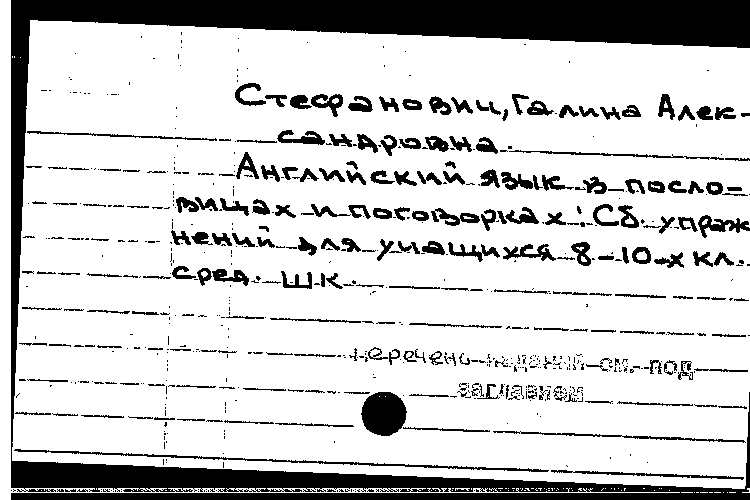 Стефанович, Галина Алек-
сандровна.
Английский язык в посло-
вицах и поговорках: Сб. упраж
нений для учащихся 8-10-х кл.
сред. шк.
перечень изданий см. под
заглавием